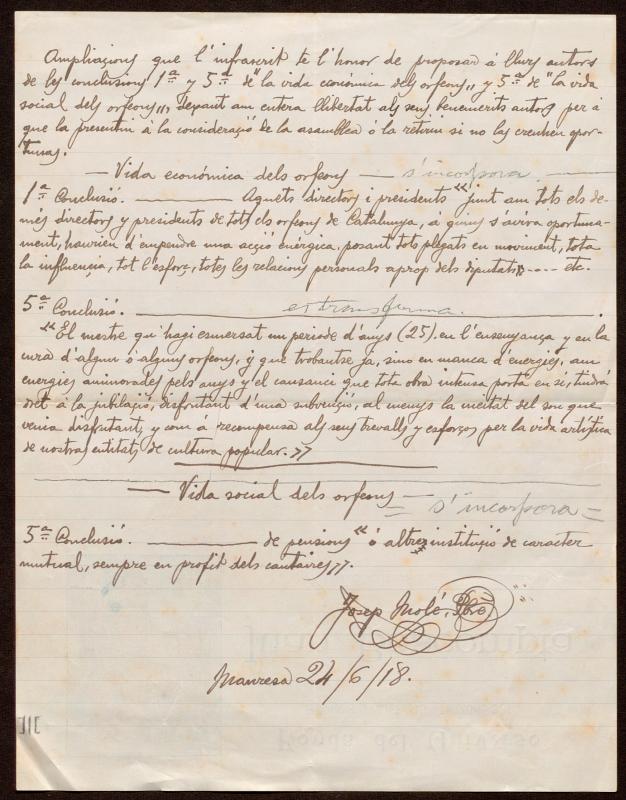 Ampliacions que l'infrascrit te l'honor de proposar á llurs autors
de les conclusions 1ª y 5ª de "la vida económica dels orfeons,, y 5ª de "la vida
social dels orfeons,,, deixant am entera llibertat als seus benemerits autors per a
que la presentin á la consideració de la asamblea ó la retirin si no las creuhen opor-
tunas.
— Vida económica dels orfeons — s'incorpora.
1ª Conclusió. ——— Aquets directors i presidents "junt am tots els de-
més directors y presidents de tots els orfeons de Catalunya, á quins s'aviva oportuna-
ment, haurien d'empendre una acció enérgica, posant tots plegats en moviment, tota
la influencia, tot l'esforç, totes les relacions personals aprop dels diputats» .... etc.
5ª Conclusió. es transforma.
"El mestre qui hagi esmersat un periode d'anys (25) en l'ensenyança y en la
cura d'algun ó alguns orfeons, y que trobantse ja, sino en manca d'energies, am
energies aminorades pels anys y el causanci que tota obra intensa porta en si, tindrá
dret á la jubilació, disfrutant d'una subvenció, al menys la meitat del sou que
venia disfrutant, y com a recompensa als seus trevalls y esforços per la vida artística
de nostras entitats de cultura popular.»
— Vida social dels orfeons —
= s'incorpora =
5ª Conclusió. ——— de pensions "ó altres institució de caracter
mutual, sempre en profit dels cantaires».
Josep Molé, Pbre
Manresa 24/6/18.